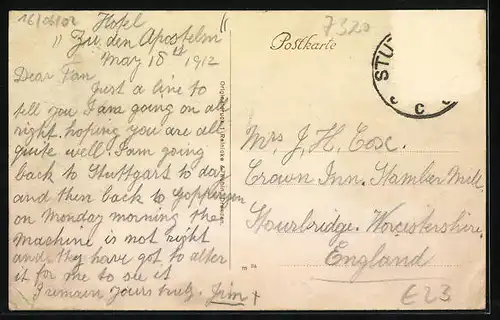 16/06/02
Hotel
"Zu den Aposteln"
May 18th 1912
Dear Fan
Just a line to
tell you I am going on all
right, hoping you are all
quite well. I am going
back to Stuttgart to day
and then back to Goppingen
on Monday morning the
machine is not right
and they have got to alter
it for me to see it
I remain yours truly. Jim +
Postkarte
7320
STU
C
Mrs J. H. Cox.
Crown Inn. Stamber Mill.
Stourbridge. Worcestershire.
England
£23